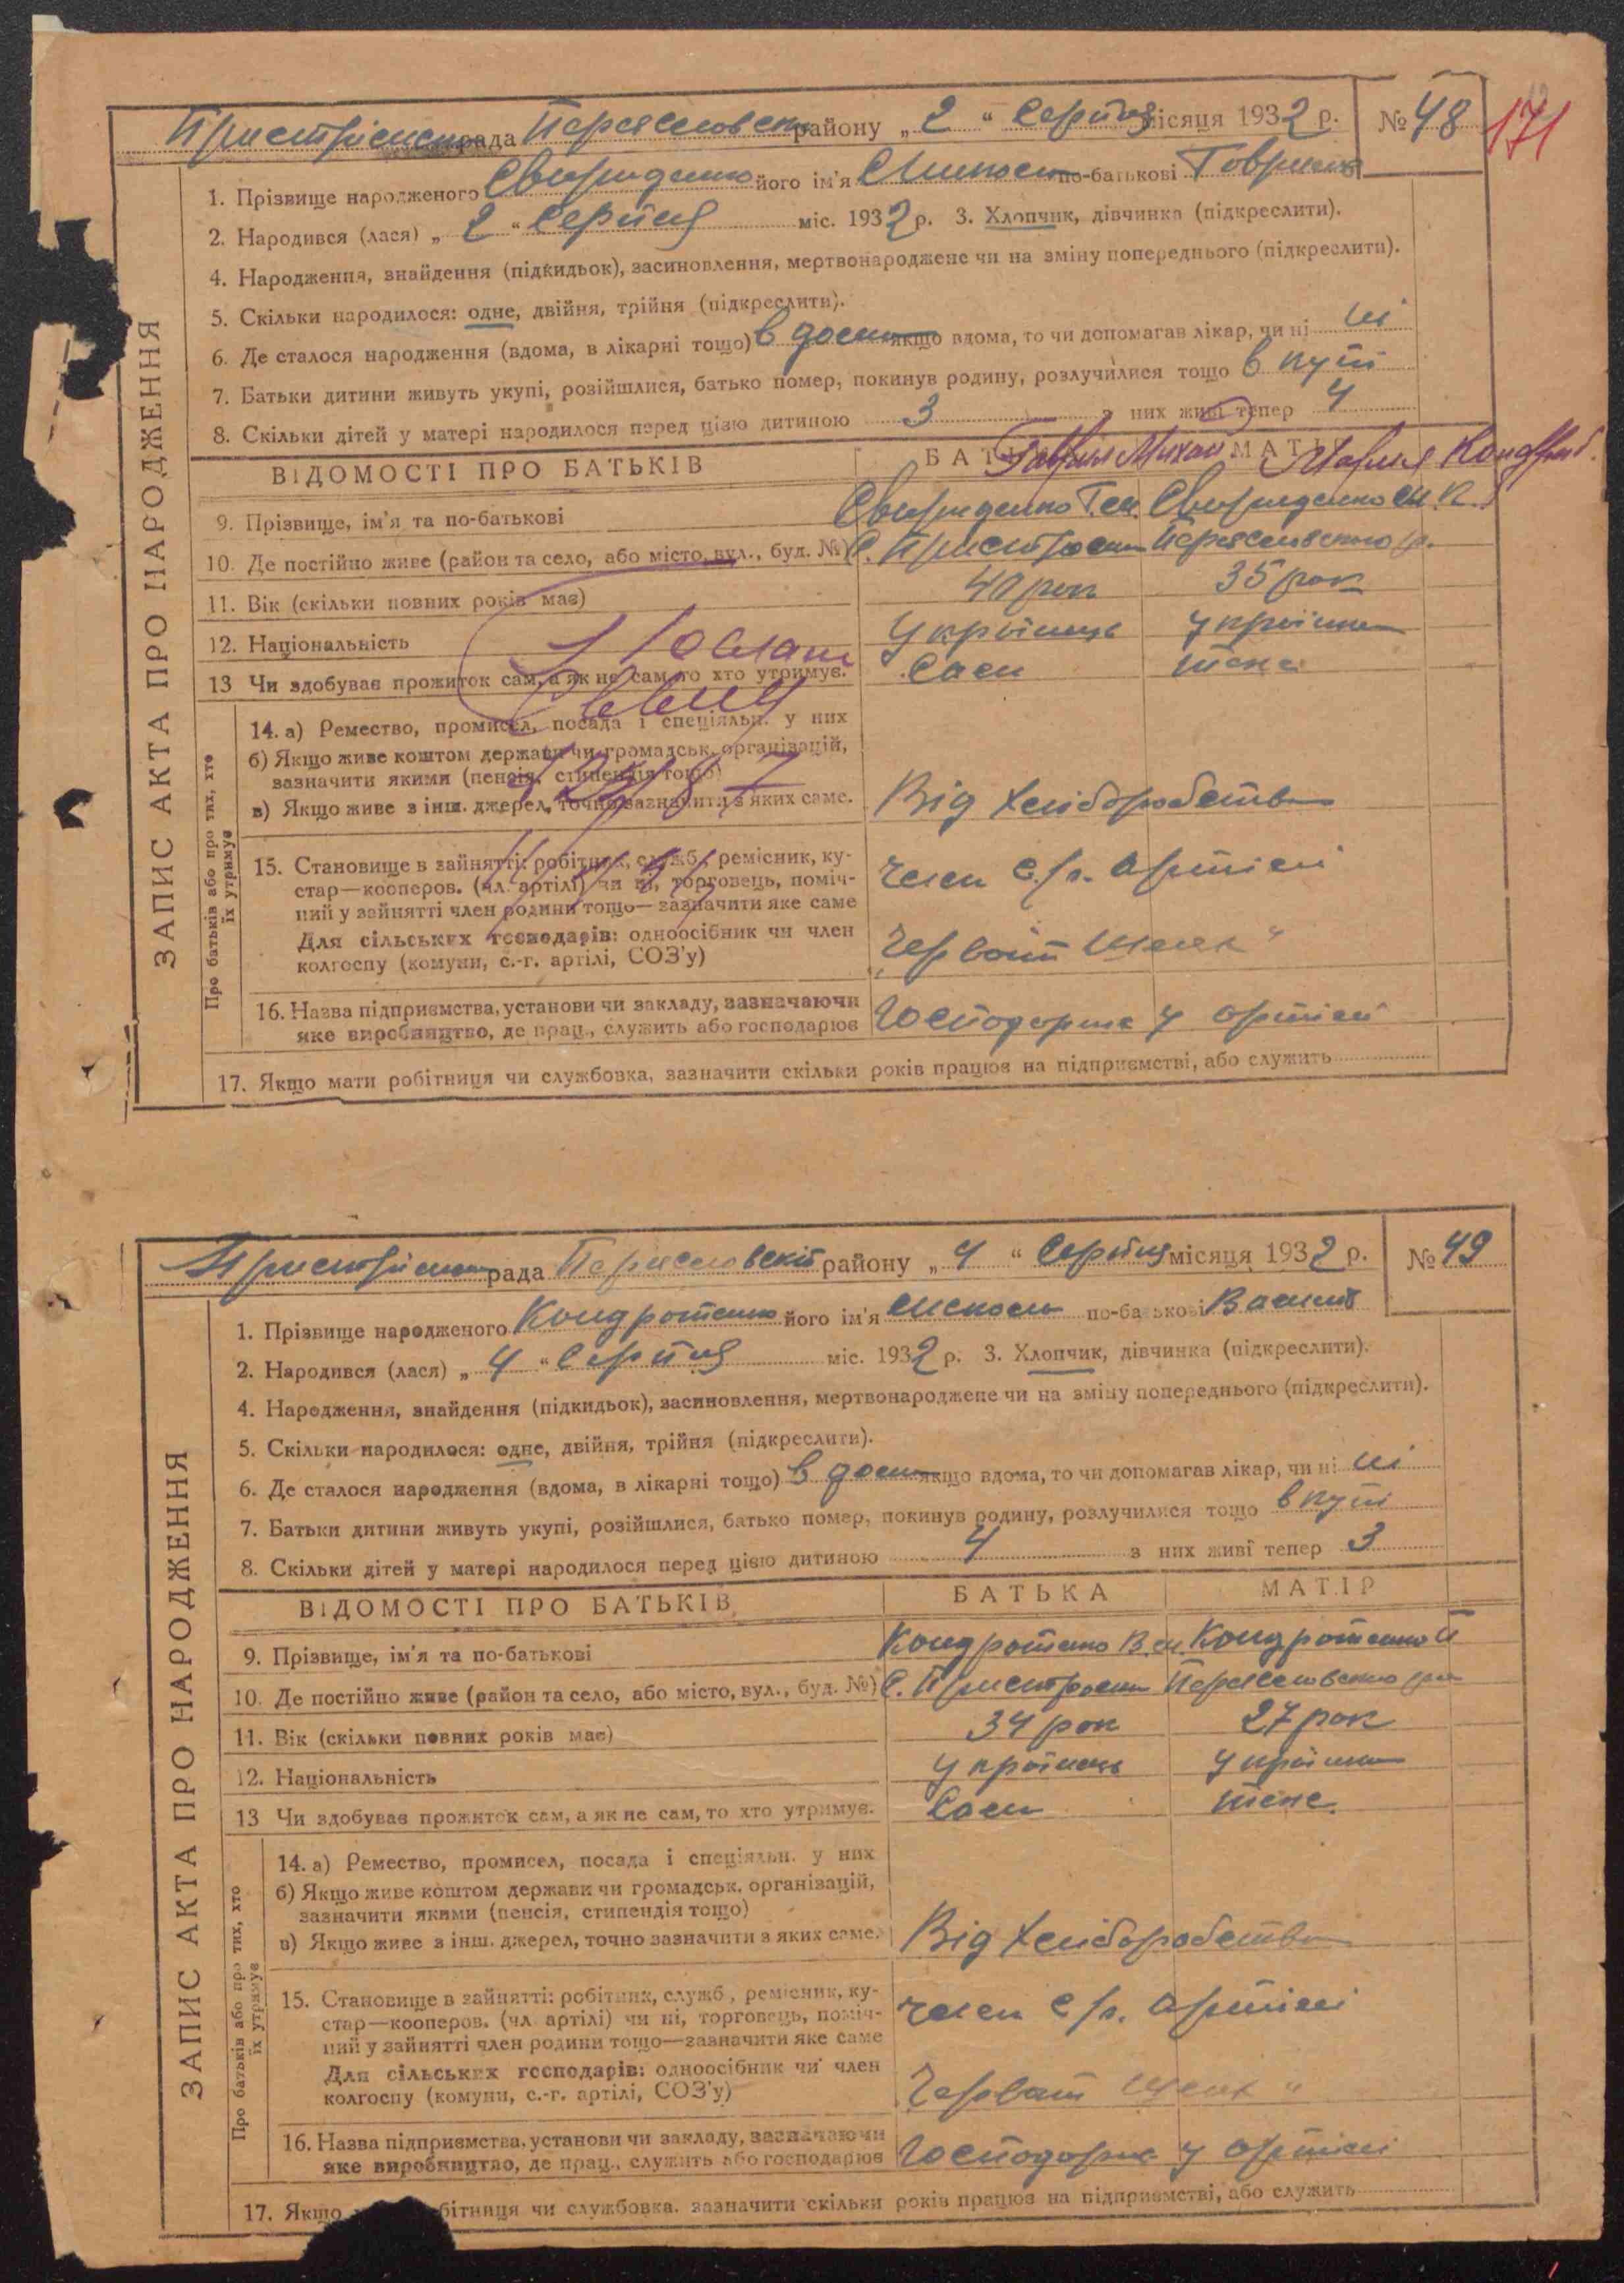 Пристрімська рада Переяславський району „ 2 “ Серпня місяця 1932 р. № 48 171
1. Прізвище народженого Свириденко його ім'я по-батькові Гаврилов
2. Народився (лася) „ 2 “ Серпня міс. 1932 р. 3. Хлопчик, дівчинка (підкреслити).
4. Народження, знайдення (підкидьок), засиновлення, мертвонароджене чи на зміну попереднього (підкреслити).
5. Скільки народилося: одне, двійня, трійня (підкреслити).
6. Де сталося народження (вдома, в лікарні тощо) в дома якщо вдома, то чи допомагав лікар, чи ні ні
7. Батьки дитини живуть укупі, розійшлися, батько помер, покинув родину, розлучилися тощо в купі
8. Скільки дітей у матері народилося перед цією дитиною 3 з них живі тепер 4
ВІДОМОСТІ ПРО БАТЬКІВ БАТЬКА МАТІР
Гаврил Михай Мария Кондрат.
9. Прізвище, ім'я та по-батькові Свириденко Г.м. Свириденко м.К.
10. Де постійно живе (район та село, або місто, вул., буд. №) С. Пристроми Переяславського р.
11. Вік (скільки повних років має) 40 рок 35 рок
12. Національність Українець Українка
13 Чи здобуває прожиток сам, а як не сам, то хто утримує. Сам
14. а) Ремество, промисел, посада і спеціяльн. у них
б) Якщо живе коштом держави чи громадськ. організацій,
зазначити якими (пенсія, стипендія тощо)
в) Якщо живе з інш. джерел, точно зазначити з яких саме. Від хліборобства
15. Становище в зайнятті: робітник, служб., ремісник, ку-
стар—кооперов. (чл. артілі) чи ні, торговець, поміч- член с/г. артілі
ний у зайнятті член родини тощо—зазначити яке саме
Для сільських господарів: одноосібник чи член
колгоспу (комуни, с.-г. артілі, СОЗ'у) „Червоний шлях“
16. Назва підприємства, установи чи закладу, зазначаючи
яке виробництво, де прац., служить або господарює Господарює у артілі
17. Якщо мати робітниця чи службовка, зазначити скільки років працює на підприємстві, або служить
ЗАПИС АКТА ПРО НАРОДЖЕННЯ
Про батьків або про тих, хто
їх утримує
Пристрімська рада Переяславський району „ 4 “ Серпня місяця 1932 р. № 49
1. Прізвище народженого Кондратенко його ім'я по-батькові Васильов
2. Народився (лася) „ 4 “ Серпня міс. 1932 р. 3. Хлопчик, дівчинка (підкреслити).
4. Народження, знайдення (підкидьок), засиновлення, мертвонароджене чи на зміну попереднього (підкреслити).
5. Скільки народилося: одне, двійня, трійня (підкреслити).
6. Де сталося народження (вдома, в лікарні тощо) в дома якщо вдома, то чи допомагав лікар, чи ні ні
7. Батьки дитини живуть укупі, розійшлися, батько помер, покинув родину, розлучилися тощо в купі
8. Скільки дітей у матері народилося перед цією дитиною 4 з них живі тепер 3
ВІДОМОСТІ ПРО БАТЬКІВ БАТЬКА МАТІР
9. Прізвище, ім'я та по-батькові Кондратенко В.м. Кондратенко П
10. Де постійно живе (район та село, або місто, вул., буд. №) С. Пристроми Переяславського рай
11. Вік (скільки повних років має) 34 рок 27 рок
12. Національність Українець Українка
13 Чи здобуває прожиток сам, а як не сам, то хто утримує. Сам
14. а) Ремество, промисел, посада і спеціяльн. у них
б) Якщо живе коштом держави чи громадськ. організацій,
зазначити якими (пенсія, стипендія тощо)
в) Якщо живе з інш. джерел, точно зазначити з яких саме. Від хліборобства
15. Становище в зайнятті: робітник, служб., ремісник, ку-
стар—кооперов. (чл. артілі) чи ні, торговець, поміч- член с/г. артілі
ний у зайнятті член родини тощо—зазначити яке саме
Для сільських господарів: одноосібник чи член
колгоспу (комуни, с.-г. артілі, СОЗ'у) „Червоний шлях“
16. Назва підприємства, установи чи закладу, зазначаючи
яке виробництво, де прац., служить або господарює Господарює у артілі
17. Якщо бітниця чи службовка, зазначити скільки років працює на підприємстві, або служить
ЗАПИС АКТА ПРО НАРОДЖЕННЯ
Про батьків або про тих, хто
їх утримує